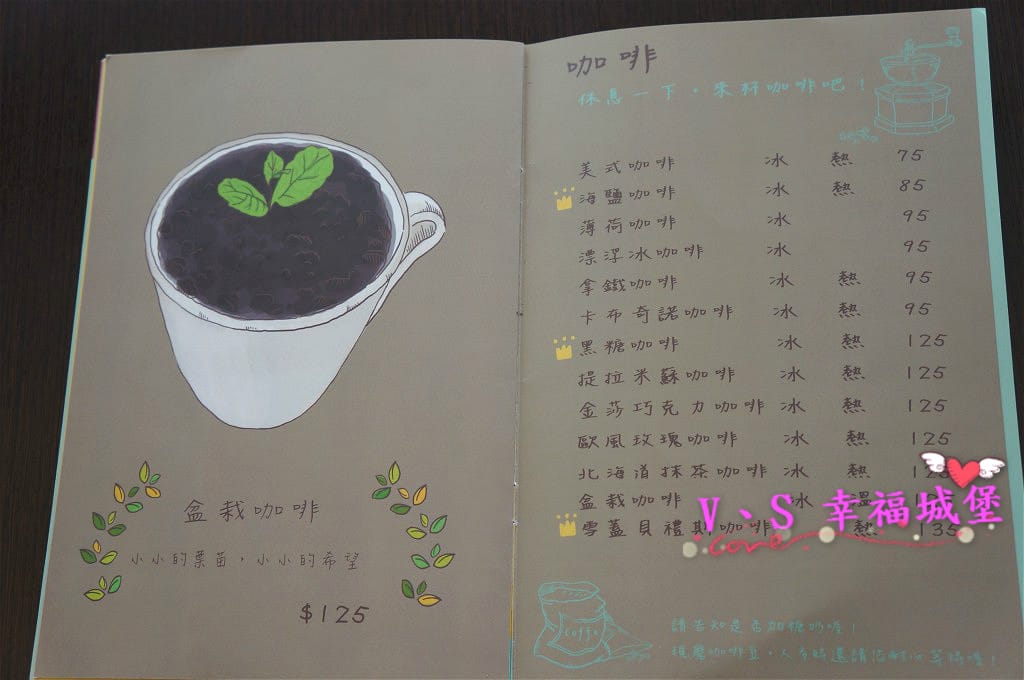 盆栽咖啡
小小的栗苗,小小的希望
$125
咖啡
休息一下,來杯咖啡吧!
美式咖啡 冰 熱 75
海鹽咖啡 冰 熱 85
薄荷咖啡 冰 95
漂浮冰咖啡 冰 95
拿鐵咖啡 冰 熱 95
卡布奇諾咖啡 冰 熱 95
黑糖咖啡 冰 熱 125
提拉米蘇咖啡 冰 熱 125
金莎巧克力咖啡 冰 熱 125
歐風玫瑰咖啡 冰 熱 125
北海道抹茶咖啡 冰 熱
盆栽咖啡 冰 溫
雪蓋貝禮斯咖啡 熱 135
V、S 幸福城堡
Love
coffe
請告知是否加糖奶喔!
現磨咖啡豆,人多時還請您耐心等待喔!